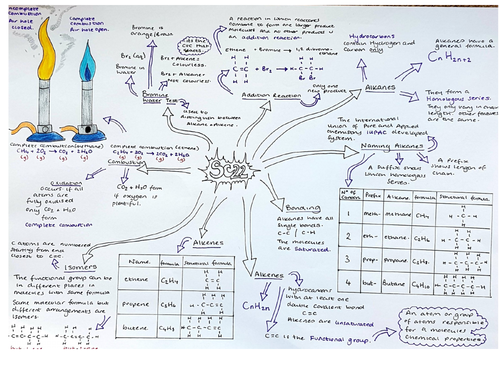 Incomplete Combustion
Air hole closed.
Complete Combustion
Air hole open.
Complete combustion (methane)
CH4 + 2O2 → CO2 + 2H2O
(g) (g) (g) (g)
complete combustion (ethene)
Combustion
Oxidation
occurs if all
atoms are
fully oxidised
only CO2 + H2O
form
Complete combustion
CO2 + H2O form
if oxygen is
plentiful.
Bromine is
orange/brown
Br2 (aq)
Bromine in
water
Bromine
Water Test
Br2 + Alkene =
Colourless.
Br2 + Alkane =
Not colourless.
used to
distinguish between
Alkane + Alkene.
A reaction in which reactants
combine to form one larger product
molecule and no other product is
an addition reaction.
Ethene + Bromine → 1,2 dibromoethane
Addition Reaction
only one
new product
SC22
Hydrocarbons
contain Hydrogen and
Carbon only.
Alkanes have a
general formula.
CnH2n+2
Alkanes
They form a
Homologous series.
They only vary in chain
length, other features
are the same.
The International
Union of Pure and Applied
Chemistry IUPAC developed
System
Naming Alkanes
A Prefix
shows length of
chain.
A Suffix shows
which homologous
series.
N° of Carbon Prefix Alkane formula Structural formula
1 meth- methane CH4
2 eth- ethane C2H6
3 prop- propane C3H8
4 but- Butane C4H10
Bonding
Alkanes have all
single bonds.
C-C / C-H
The molecules
are Saturated.
C atoms are numbered
starting from end
closest to C=C.
Isomers
The functional group can be
in different places in
molecules with same formula
Same molecular formula but
different arrangements are
isomers
Alkenes
Name formula structural formula
ethene C2H4
propene C3H6
butene C4H8
Alkenes
CnH2n
hydrocarbons
with at least one
double covalent bond
C=C
Alkenes are unsaturated
C=C is the Functional group.
An atom or group
of atoms responsible
for a molecules
chemical properties.